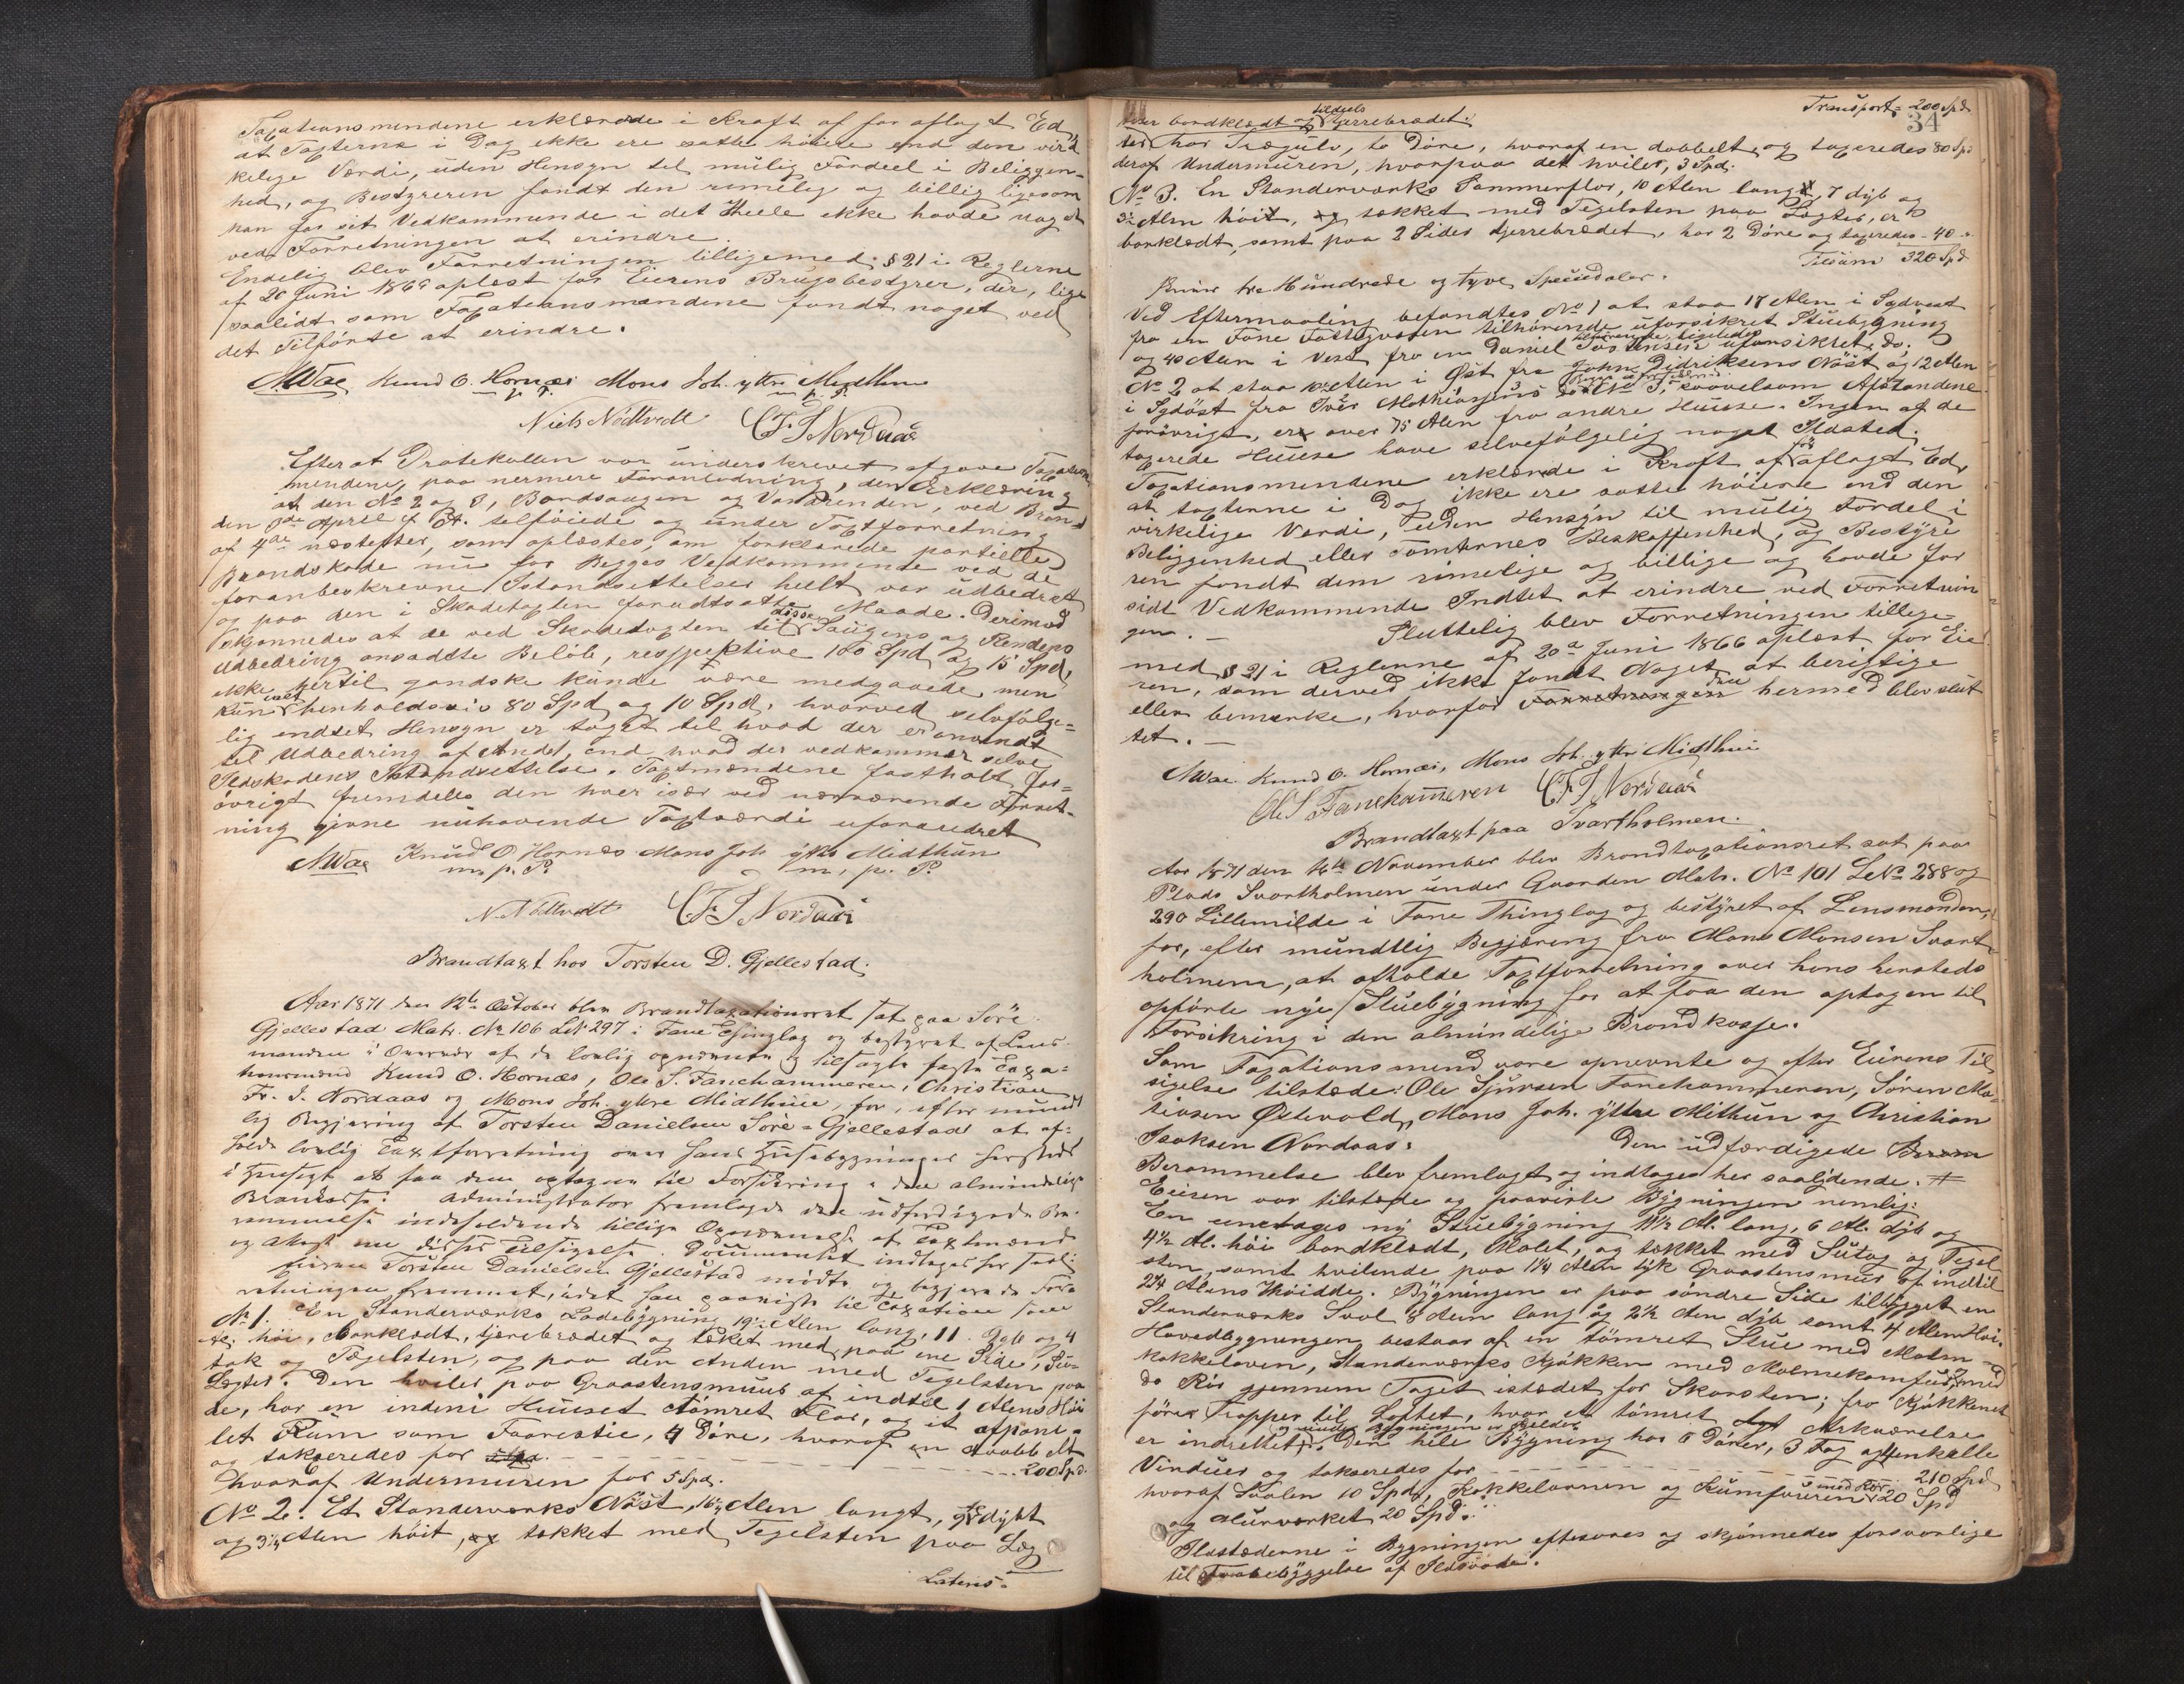 Taxationsmendene erklærede i Kraft af før aflagt Ed,
at Taxterne i Dag ikke ere satte høiere end den vir-
kelige Værdi, uden Hensyn til mulig Fordeel i Beliggen-
hed, og Bestyreren fandt den rimelig og billig ligesom
han for sit Vedkommende i det Heele ikke havde noget
ved Forretningen at erindre.
Endelig blev Forretningen tilligemed § 21 i Reglerne
af 20 Juni 1866 oplæst for Eierens Brugsbestyrer, der, lige
saalidt som Taxationsmændene fandt noget ved
det Tilførte at erindre.
AWae Knud O. Hornæs Mons Joh. yttre Midthun
m. p. P. m. p. P.
Niels Nödtvedt CFJ Nordaas
Efterat Protokollen var underskrevet afgave Taxations
mendene, paa nermere Foranledning, den Erklæring
at den No 2 og 8, Bordsaugen og Vandrenden, ved Brand
den 3de April d. A. tilføiede og under Taxtforretning
af 4de næstefter, som oplæstes, om forklarede partielle
Brandskade nu for Begges Vedkommende ved de
foranbeskrevne Istandsættelser heelt var udbedret
og paa den i Skadetaxten forudsatte Maade. Derimod
skjønnedes at de ved Skadetaxten til disse Saugens og Rendens
Udbedring ansadte Beløb, respektive 100 Spd og 15 Spd,
ikke hertil gandske kunde være medgaaede, men
kun henholdsviis 80 Spd og 10 Spd, hvorved selvfølge-
lig endset Hensyn er taget til hvad der er anvendt
til Udbedring af Andet, end hvad der vedkommer selve
Ildskadens Istandsettelse. Taxtmændene fastholdt for-
øvrigt fremdeles den hver især ved nærværende Forret-
ning givne nuhavende Taxtværdi uforandret
AWae Knud O Hornæs Mons Joh yttre Midthun
m. p. P. m. p. P.
N. Nödtvedt CFJ Nordaas
Brandtaxt hos Torsten D. Gjellestad.
Aar 1871 den 12te October blev Brandtaxationsret sat paa Söre
Gjellestad Matr. No 106 LNo 297 i Fane Thinglag og bestyret af Lens-
manden i Overvær af de lovlig opnævnte og tilsagte faste Taxa-
tionsmænd Knud O. Hornæs, Ole S. Fanehammeren, Christian
Fr. I. Nordaas og Mons Joh. yttre Midthun, for, efter mundt
lig Begjæring af Torsten Danielsen Söre-Gjellestad at af-
holde lovlig Taxtforretning over hans Husebygninger hersteds
i Hensigt at faa dem optagen til Forsikring i den almindelige
Brandkasse. Administrator fremlagde den udfærdigede Be-
rammelse indeholdende tillige Opnævnelse af Taxtmænd
og Attest om disses Tilsigelse. Documentet indtages her
Eieren Torsten Danielsen Gjellestad mødte og begjærede For-
retningen fremmet, idet han paaviste til Taxation
No 1. En Standerværks Ladebygning 19½ Alen lang, 11 dyb og 4
Al. høi, bordklædt, tjærebrædet og tæket med, paa ene Side, Su-
tak og Tægelsten, og paa den Anden med Tegelsten paa
Lægter. Den hviler paa Graastensmuur af indtil 1 Alens Høi
de, har en indeni Huuset tømret Flor, og et afpane-
let Rum som Faarestie, 4 Døre, hvoraf en dobbelt
og takseredes for ... 200 Spd.
hvoraf Undermuren for 5 Spd.
No 2. Et Standerværks Nöst, 16½ Alen langt, 9½ dybt
og 3¼ Alen höit, og tækket med Tegelsten paa Læg
Lateris.
Transport 200 Spd
34
ter bordklædt og tildeels tjerrebrædet.
har Trægulv, to Döre, hvoraf en dobbelt, og taxeredes 80 Spd
deraf Undermuren, hvorpaa det hviler, 3 Spd.
No 3. En Standerværks Sommerflor, 10 Alen lang, 7 dyb og
3½ Alen høi, og tækket med Tegelsten paa Lægter, er
bordklædt, samt paa 2 Sider tjerrebrædet, har 2 Döre og taxeredes 40 "
Tilsam 320 Spd
skriver tre Hundrede og tyve Speciedaler.
Ved Eftermaaling befandtes No 1 at staa 17 Alen i Sydvest
fra en Fane Fattigvæsen tilhörende uforsikret Stuebygning
og 40 Alen i Vest fra en Daniel Torstensen tilhørende ligeledes uforsikret do.
No 2 at staa 10½ Alen i Øst fra John Didriksens Nöst og 12 Alen
i Sydöst fra Iver Mathiasens do. No 3, saavelsom Afstandene
forövrigt, er over 75 Alen fra andre Huuse. Ingen af de
taxerede Huuse have selvfølgelig noget Ildsted.
Taxationsmendene erklærede i Kraft af før aflagt Ed,
at taxterne i Dag ikke ere satte høiere end den
virkelige Værdi, uden Hensyn til mulig Fordel i
Beliggenhed eller Tomternes Beskaffenhed, og Bestyre
ren fandt dem rimelige og billige og havde for
sidt Vedkommende Indtet at erindre ved Forretnin
gen. —
Sluttelig blev Forretningen tillige-
med § 21 i Reglerne af 20de Juni 1866 oplæst for Eie
ren, som derved ikke fandt Noget at berigtige
eller bemærke, hvorfor Forretningen hermed blev slut
tet. —
AWae Knud O. Hornæs, Mons Joh. yttre Midthun
Ole S Fanehammeren CFJ Nordaas
Brandtaxt paa Svartholmen.
Aar 1871 den 16de November blev Brandtaxationsret sat paa
Plads Svartholmen under Gaarden Matr. No 101 LNo 288 og
290 Lillemilde i Fane Thinglag og bestyret af Lensmanden,
for, efter mundtlig Begjæring fra Mons Monsen Svart
holmen, at afholde Taxtforretning over hans hersteds
opførte nye Stuebygning for at faa den optagen til
Forsikring i den almindelige Brandkasse.
Som Taxationsmend vare opnevnte og efter Eierens Til
sigelse tilstede: Ole Sjursen Fanehammeren, Sören Ma-
tiasen Østevold, Mons Joh. yttre Mithun og Christian
Isaksen Nordaas. Den udfærdigede
Berammelse blev fremlagt og indtages her saalydende. #
Eieren var tilstede og paaviste Bygningen nemlig:
En eenetages ny Stuebygning 11½ Al. lang, 6 Al. dyb og
4½ Al. høi bordklædt, Malet, og tækket med Sutag og Tegel
sten, samt hvilende paa 1¼ Alen tyk Graastensmur af indtil
2¼ Alens Høidde. Bygningen er paa søndre Side tilbygget en
Standerværks Sval 8 Alen lang og 2½ Alen dyb samt 4 Alen høi.
Hovedbygningen bestaar af en tömret Stue med Malm-
kakkelovn, Standerværks Kjøkken med Malmekomfur, med
do Rör gjennem Taget istædet for Skorsten; fra Kjøkkenet
fører Trapper til Loftet, hvor et tömret Arkværelse
er indrettet, og under Bygningen er Kjelder. Den hele Bygning har 6 Dører, 3 Fag og enkelte
Vinduer og takseredes for ... 210 Spd
hvoraf Svalen 10 Spd, Kakkelovnen og Kumfuren med Rør 20 Spd
og Murværket 20 Spd.
Ildstæderne i Bygningen eftersaaes og skjønnedes forsvarlige
til Forebyggelse af Ildsvaade.